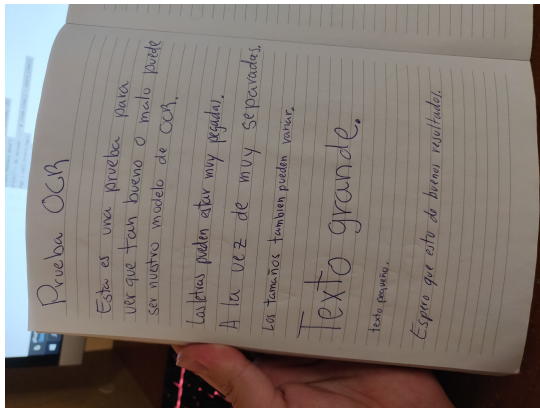 Prueba OCR
Esta es una prueba para
ver que tan bueno o malo puede
ser nuestro modelo de OCR.
Las letras pueden estar muy pegadas.
A la vez de muy separadas.
Los tamaños tambien pueden variar.
Texto grande.
texto pequeño.
Espero que esto de buenos resultados.